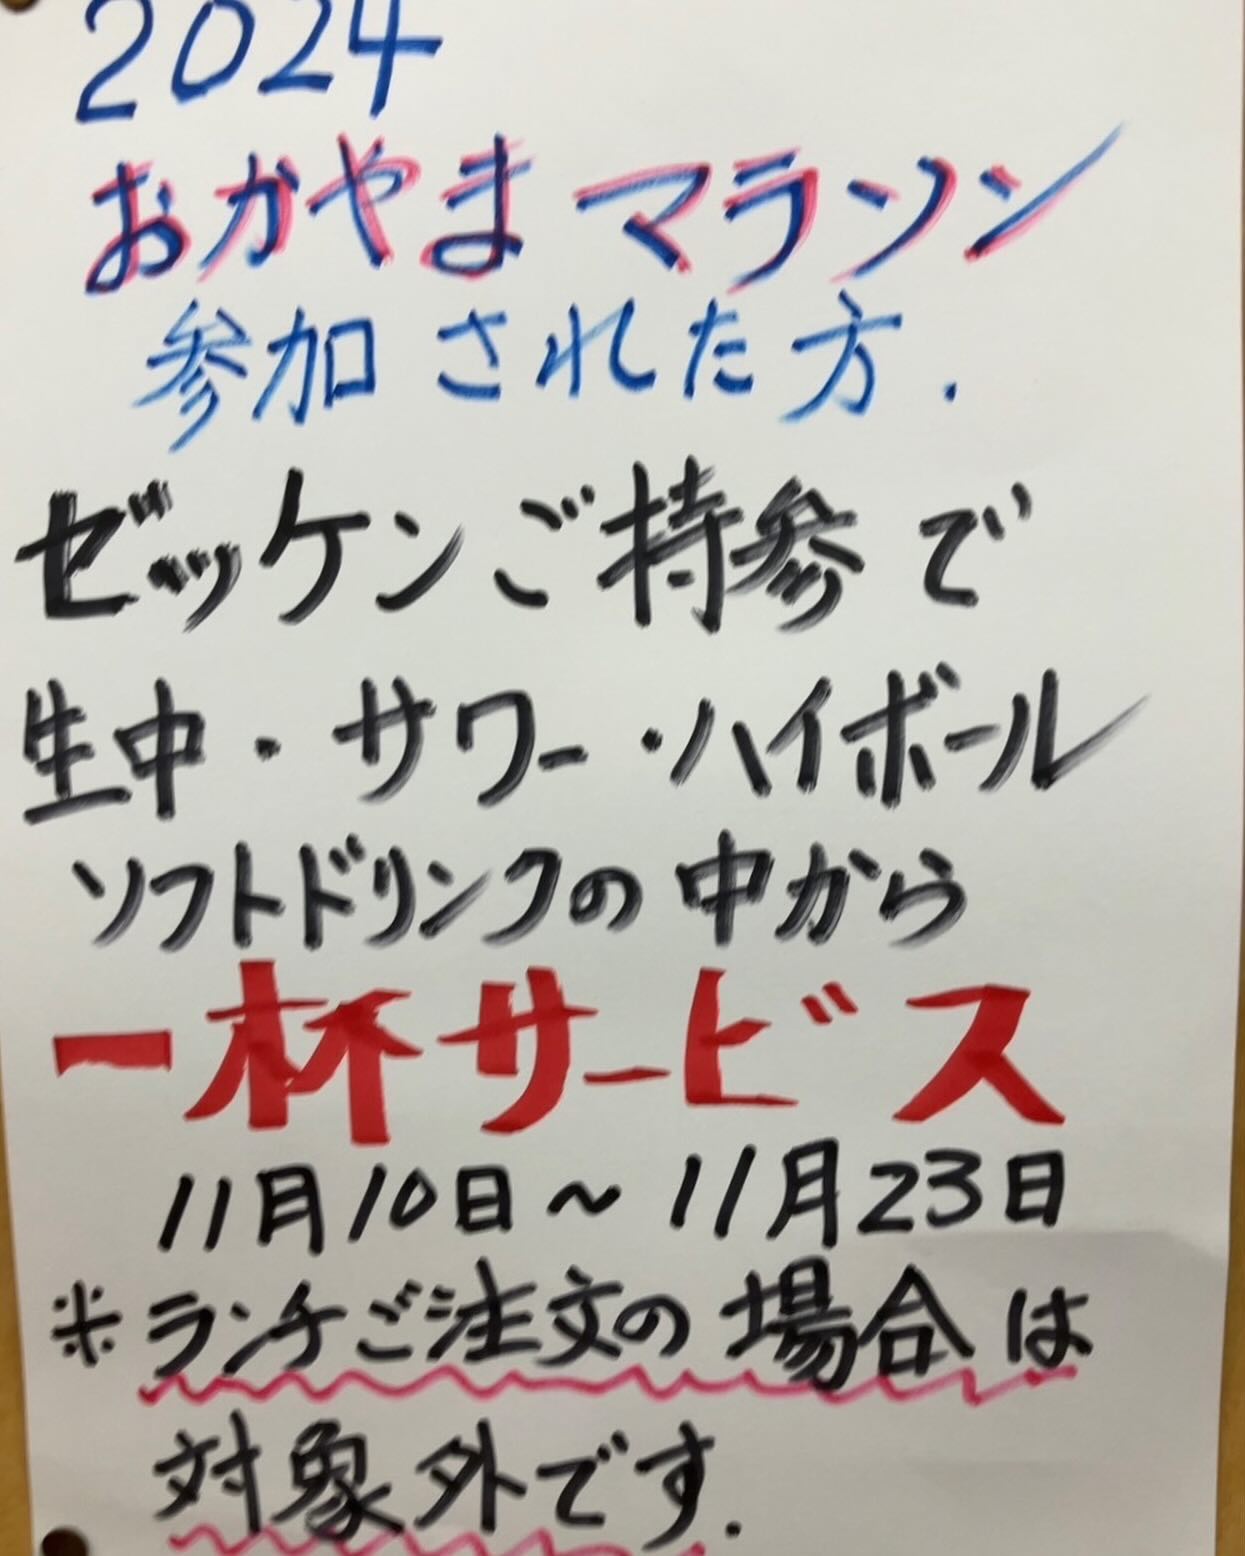 2024
おかやまマラソン
参加された方.
ゼッケンご持参で
生中・サワー・ハイボール
ソフトドリンクの中から
一杯サービス
11月10日~11月23日
※ランチご注文の場合は
対象外です.